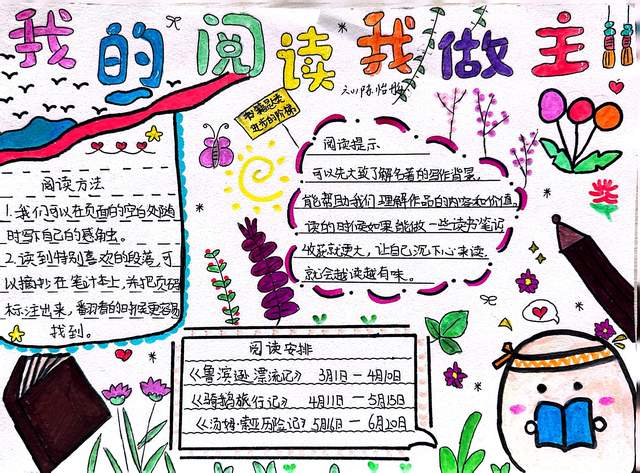 我的阅读我做主
书籍是人类
进步的阶梯
阅读方法
1.我们可以在页面的空白处随
时写下自己的感触。
2.读到特别喜欢的段落,可
以摘抄在笔计本上,并把页码
标注出来,翻看的时候更容易
找到。
阅读提示
可以先大致了解名著的写作背景,
能帮助我们理解作品的内容和价值。
读的时候如果能做一些读书笔记
收获就更大,让自己沉下心来读,
就会越读越有味。
阅读安排
《鲁滨逊漂流记》 3月1日—4月10日
《骑鹅旅行记》 4月11日—5月15日
《汤姆·索亚历险记》5月16日—6月20日